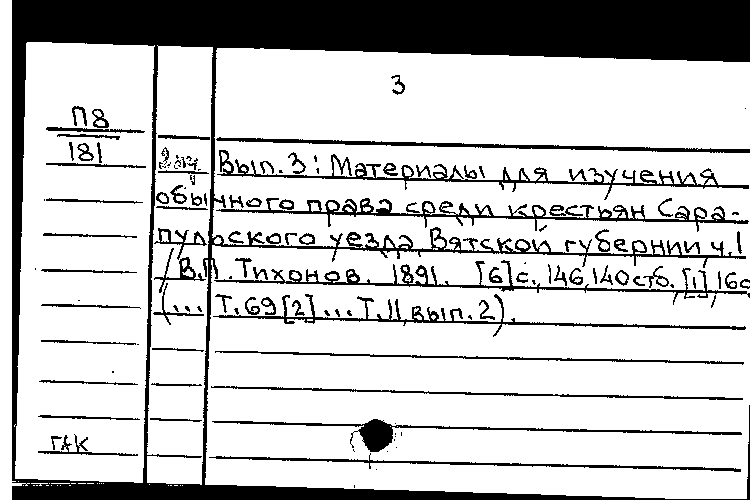 3
П8
181
2 экз. Вып. 3: Материалы для изучения
обычного права среди крестьян Сара-
пульского уезда Вятской губернии, ч. 1
/ В.П. Тихонов. 1891. [6] с., 146, 140 стб., [1], 16 с
(... Т. 69 [2] ... Т. 11, вып. 2).
ГАК